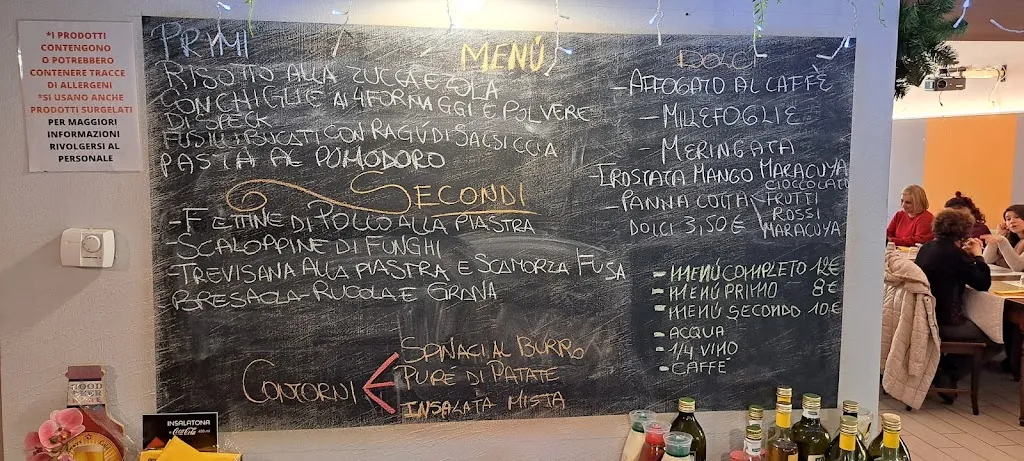 *I PRODOTTI
CONTENGONO
O POTREBBERO
CONTENERE TRACCE
DI ALLERGENI
*SI USANO ANCHE
PRODOTTI SURGELATI
PER MAGGIORI
INFORMAZIONI
RIVOLGERSI AL
PERSONALE
MENÚ
PRIMI
RISOTTO ALLA ZUCCA E ZOLA
CONCHIGLIE AI 4 FORMAGGI E POLVERE
DI SPECK
FUSILLI BUCATI CON RAGÚ DI SALSICCIA
PASTA AL POMODORO
SECONDI
-FETTINE DI POLLO ALLA PIASTRA
-SCALOPPINE DI FUNGHI
-TREVISANA ALLA PIASTRA E SCAMORZA FUSA
-BRESAOLA-RUCOLA E GRANA
CONTORNI
SPINACI AL BURRO
PURÉ DI PATATE
INSALATA MISTA
DOLCI
-AFFOGATO AL CAFFÈ
-MILLEFOGLIE
-MERINGATA
-CROSTATA MANGO MARACUYA
-PANNA COTTA
CIOCCOLATO
FRUTTI
ROSSI
MARACUYA
DOLCI 3,50 €
-MENÚ COMPLETO 12€
-MENÚ PRIMO 8€
-MENÚ SECONDO 10€
-ACQUA
-1/4 VINO
-CAFFÈ
INSALATONA
Coca-Cola